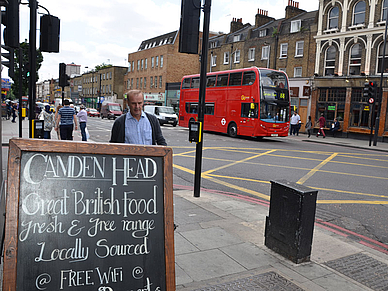 CAMDEN HEAD
Great British Food
Fresh & Free range
Locally Sourced
@ FREE WiFi @